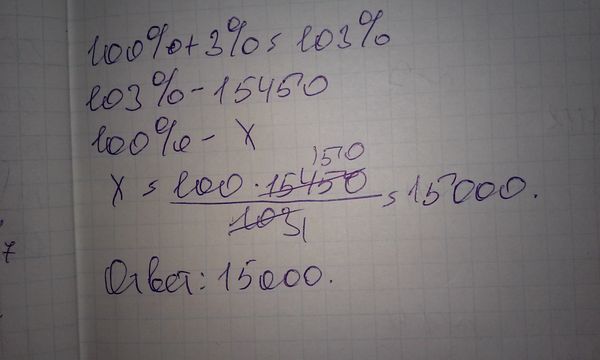 100% + 3% = 103%
103% - 15450
100% - X
150
X = 100 · 15450 / 103 1 = 15000.
Ответ: 15000.
7